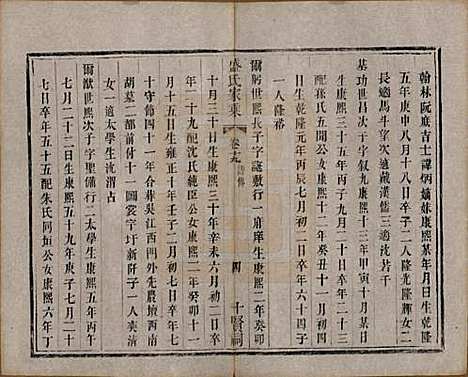 翰林阮庶吉士諱炳嫡妹康熙某年月日生乾隆
五年庚申八月十八日卒子二人隆光隆輝女二
長適馬斗望次適戴漢儒三適沈若千
基功世昌次子字叙九康熙十三年甲寅十月某日
生康熙三十五年丙子九月二十三日卒
配孫氏五聞公女康熙十二年癸丑十一月初四
日生乾隆元年丙辰七月初二日卒年六十四子
一人隆裕
爾躬世熙長子字諟敷行一府庠生康熙二年癸卯
盛氏家乘
卷九
四
十賢祠
十月三十日生康熙三十年辛未六月初三日卒
年二十九配沈氏純臣公女康熙二年癸卯十一
月十五日生雍正十年壬子二月初七日卒年七
十守節四十一年合葬吳江西門外先農壇西南
胡墓二部前付十一圖裳字圩新阡子一人奕清
女一適太學生沈渭占
爾猷世熙次子字聖備行二太學生康熙五年丙午
七月初六日生康熙五十九年庚子七月二十
七日卒年五十五配朱氏同垣公女康熙六年丁